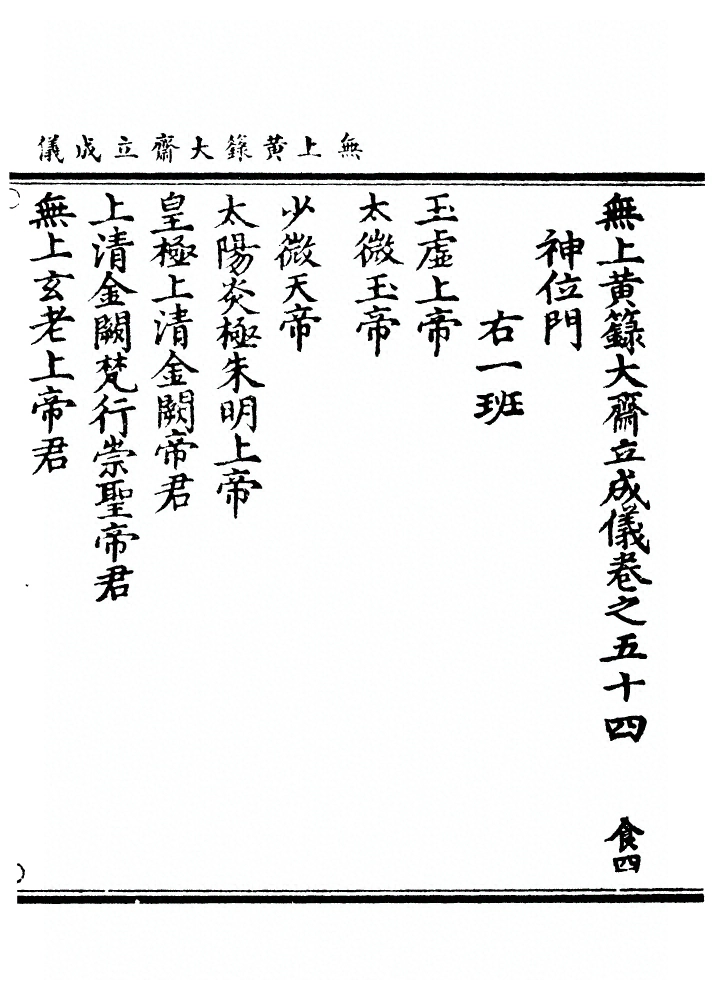 無上黄籙大齋立成儀
無上黄籙大齋立成儀卷之五十四 食四
神位門
右一班
玉虛上帝
太微玉帝
少微天帝
太陽炎極朱明上帝
皇極上清金闕帝君
上清金闕梵行崇聖帝君
無上玄老上帝君